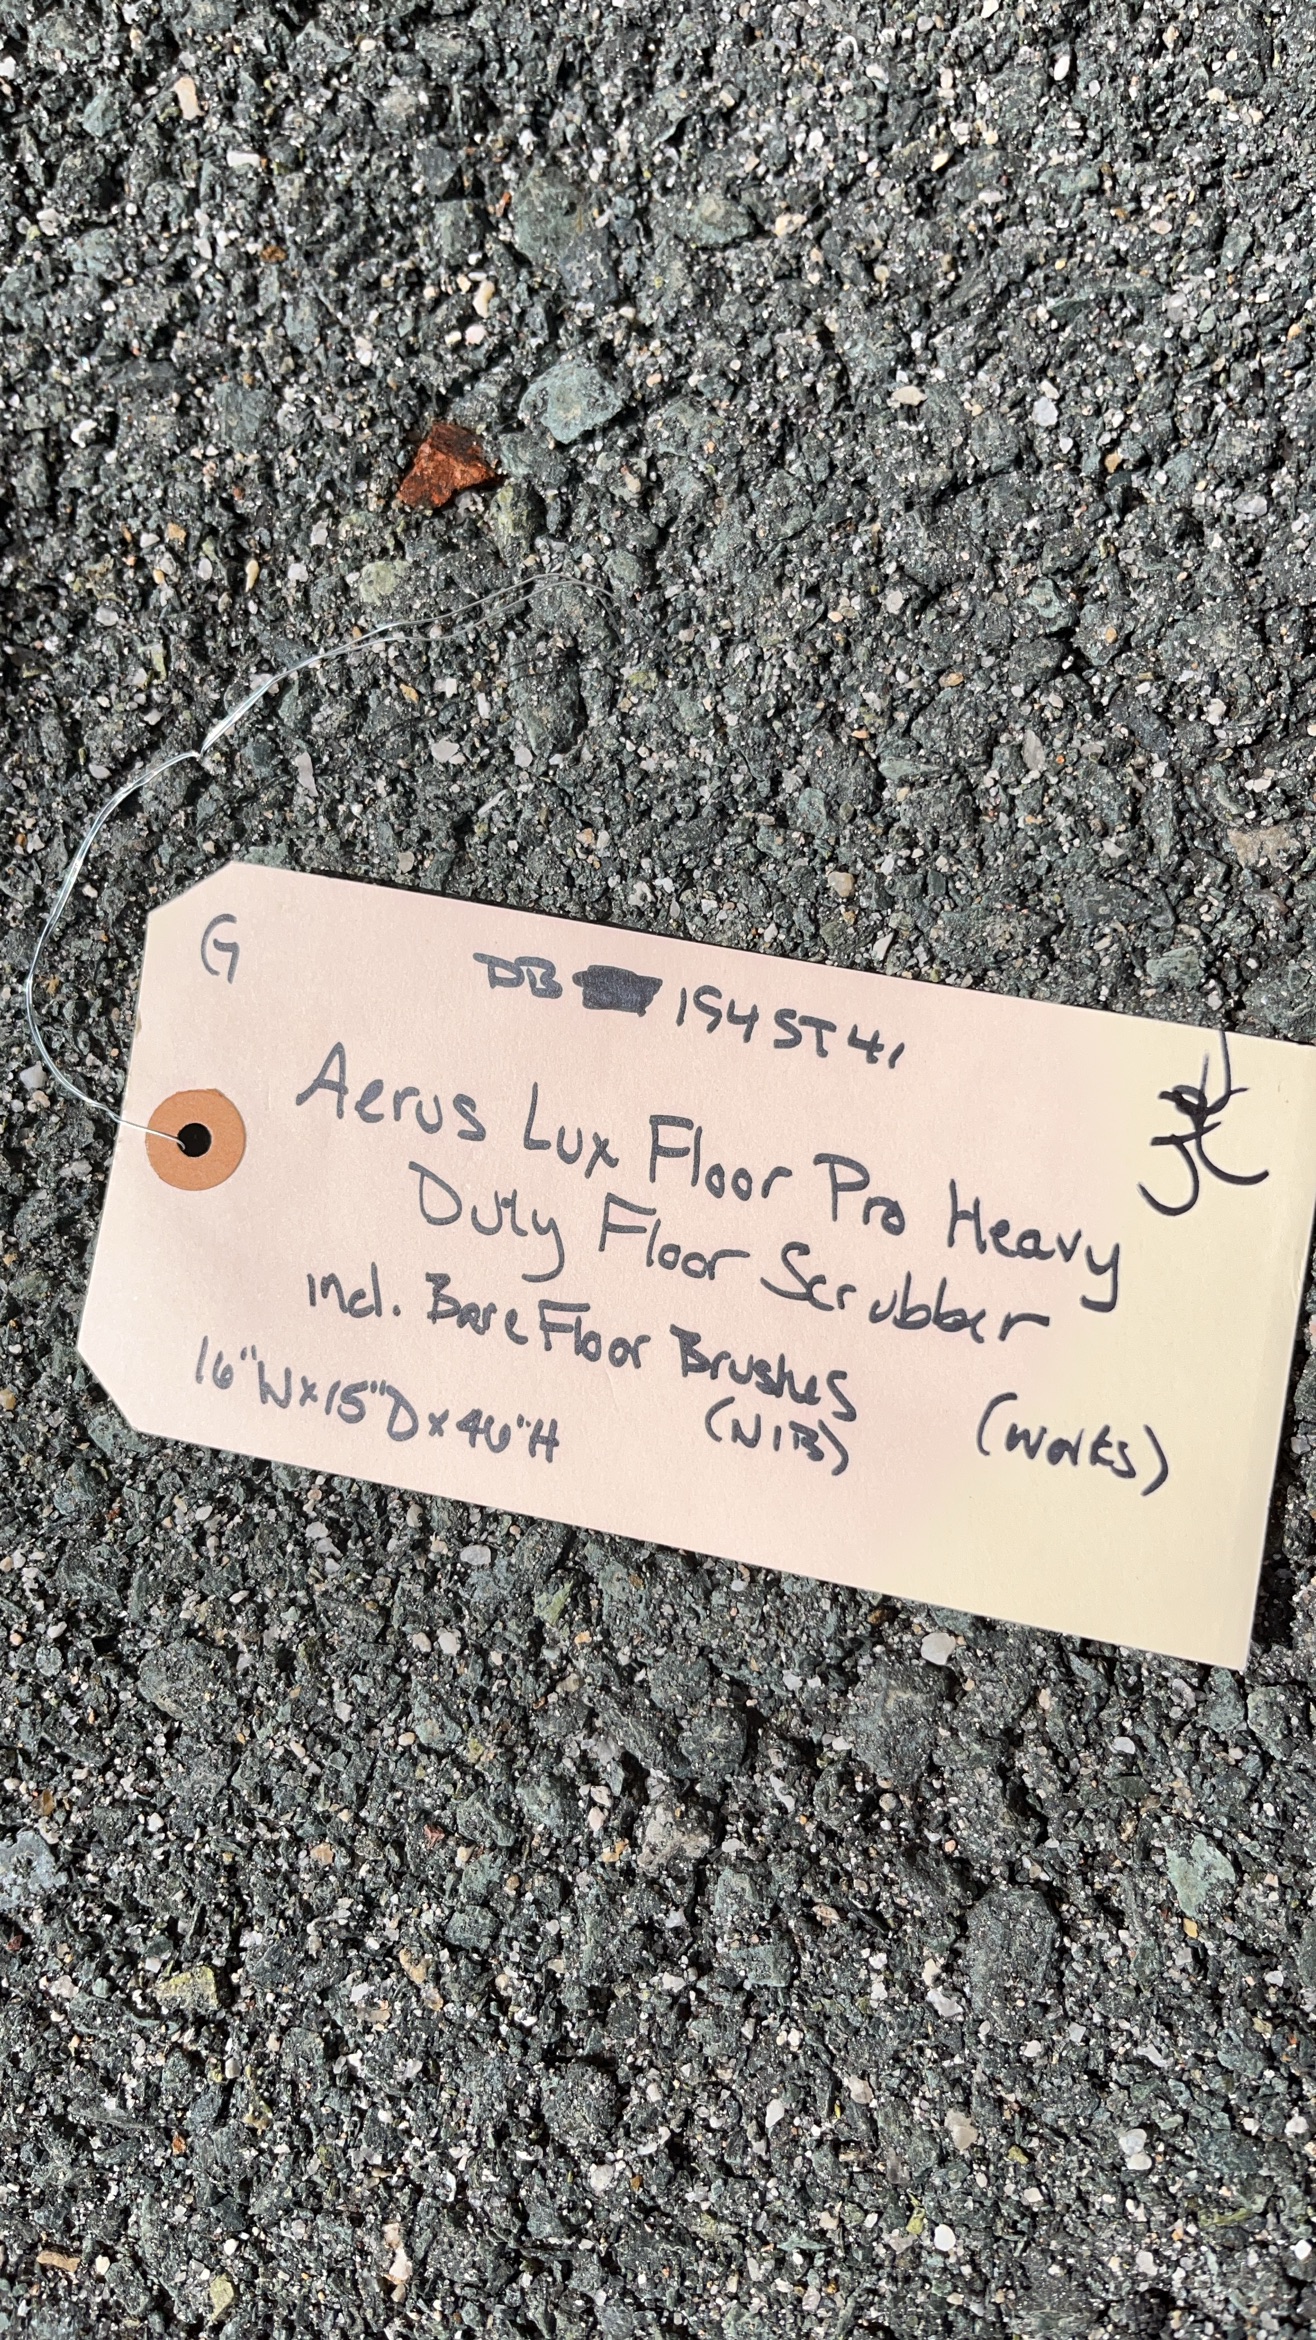 G
DB 154ST41
Aerus Lux Floor Pro Heavy
Duty Floor Scrubber
incl. Bare Floor Brushes
(NIB)
16"W x 15"D x 46"H
(works)